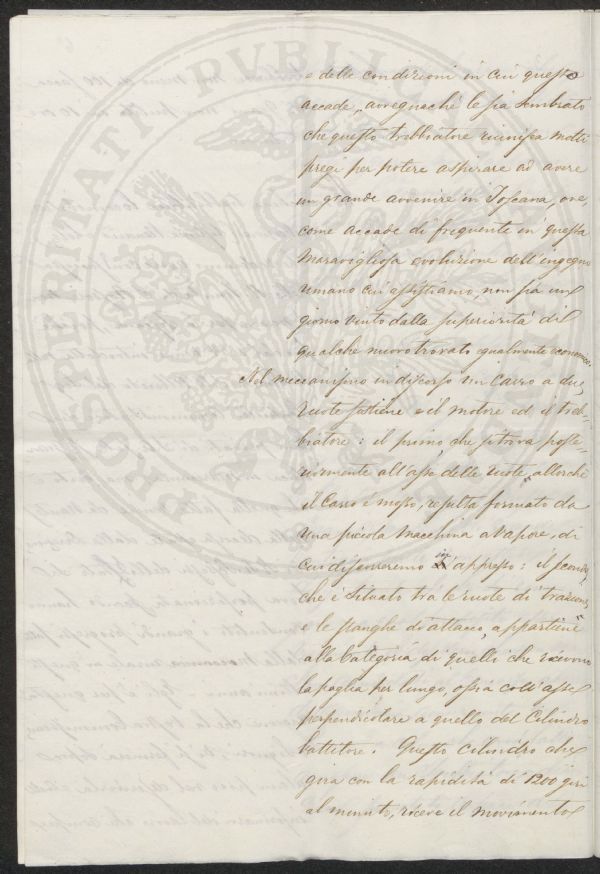 e delle condizioni in cui questo
accade, avvegnaché le sia sembrato
che questo trebbiatore riunisca molti
pregi per potere aspirare ad avere
un grande avvenire in Toscana, ove,
come accade di frequente in questa
maravigliosa evoluzione dell'ingegno
umano cui assistiamo, non sia un
giorno vinto dalla superiorità di
qualche nuovo trovato egualmente economico.
Nel meccanismo in discorso un Carro a due
ruote sostiene e il motore ed il treb-
biatore: il primo che si trova poste-
riormente all'asse delle ruote, allorché
il Carro è mosso, resulta formato da
una piccola Macchina a Vapore, di
cui discorreremo in appresso: il secondo,
che è situato tra le ruote di trazione,
e le stanghe di attacco, appartiene
alla Categoria di quelli che ricevono
la paglia per lungo, ossia coll'asse
perpendicolare a quello del Cilindro
battitore. Questo cilindro che
gira con la rapidità di 1200 giri
al minuto, riceve il movimento
PROSPERITATI PVBLICAE